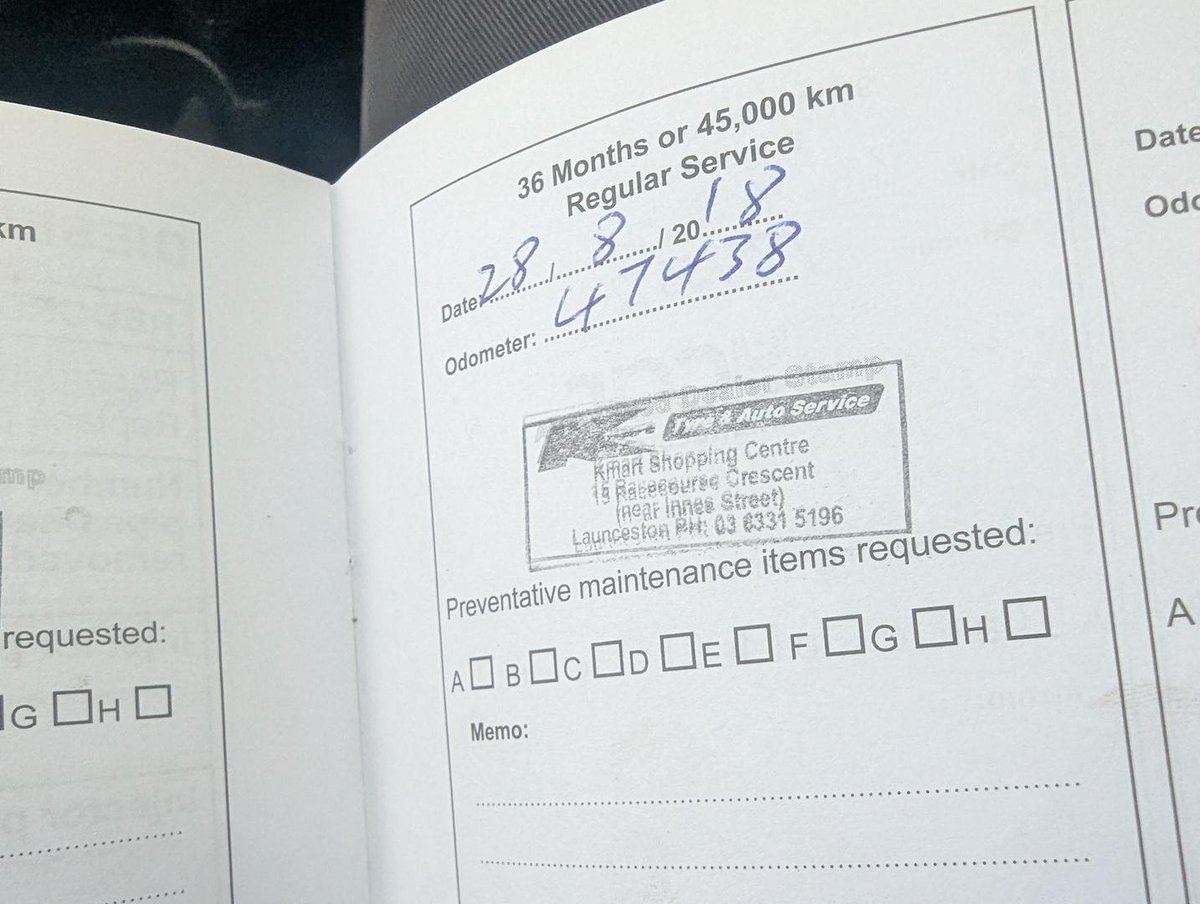 km
requested:
G H
36 Months or 45,000 km
Regular Service
Date: 28 / 8 / 20 18
Odometer: 47438
Dealer Stamp
Tyre & Auto Service
Kmart Shopping Centre
15 Racecourse Crescent
(near Innes Street)
Launceston PH: 03 6331 5196
Preventative maintenance items requested:
A B C D E F G H
Memo:
Date
Odo
Pre
A